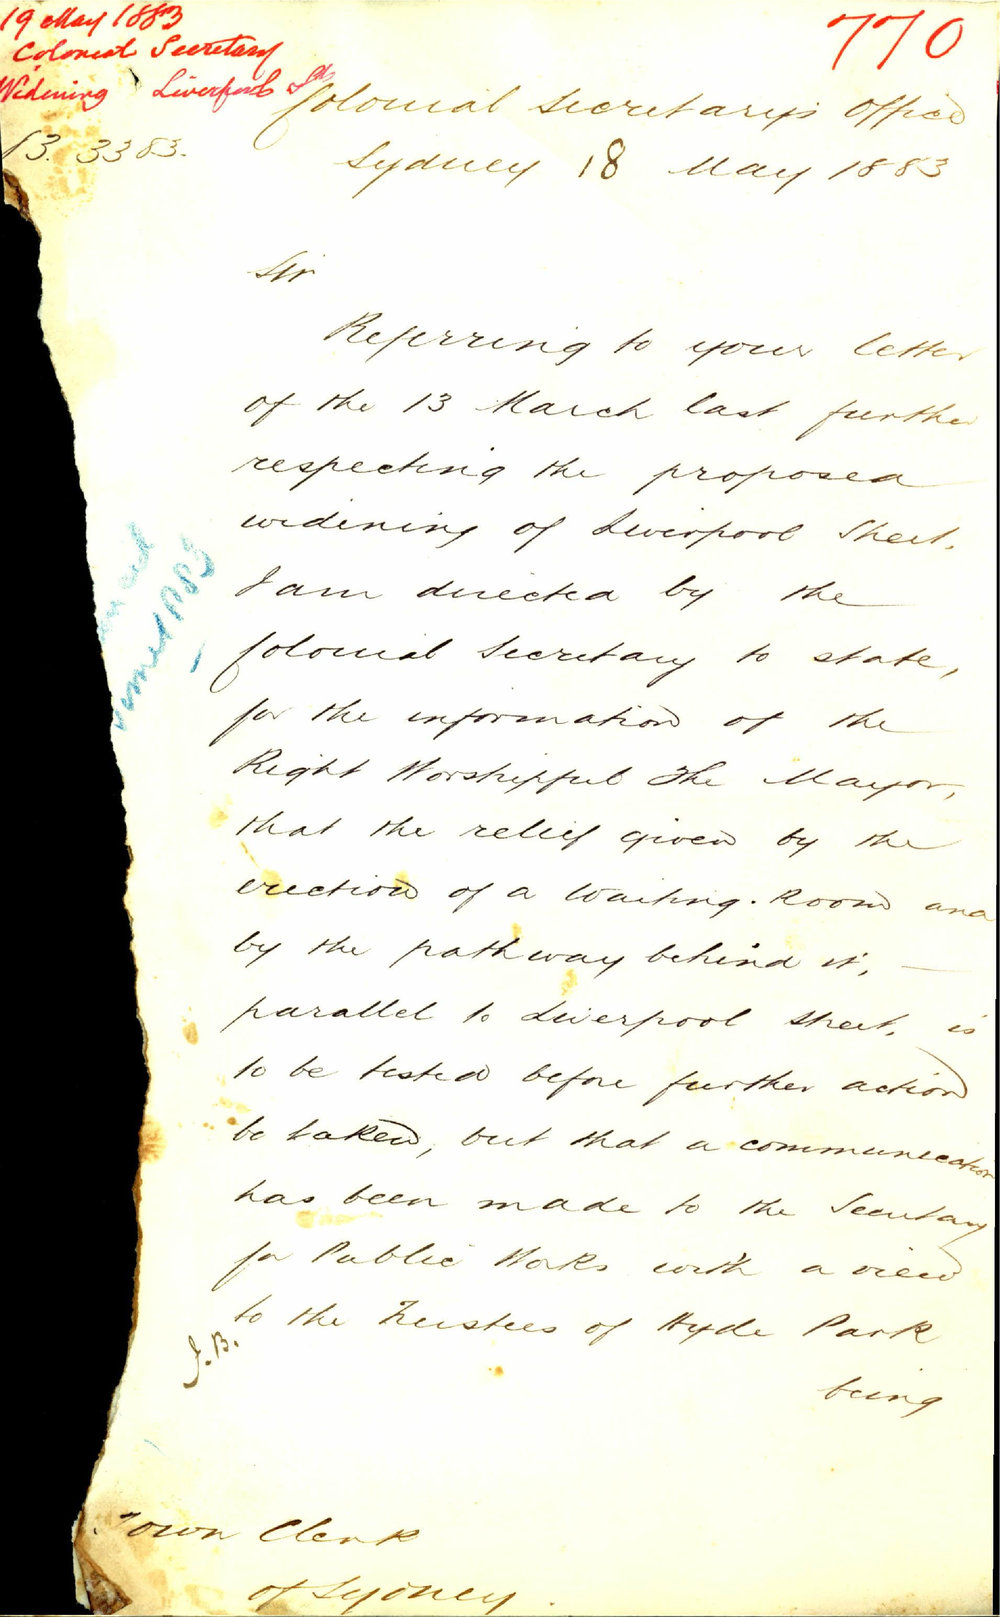 19 May 1883
Colonial Secretary
Widening Liverpool St
770
83. 3383.
Colonial Secretary's Office
Sydney 18 May 1883
Sir
Referring to your letter
of the 13 March last further
respecting the proposed
widening of Liverpool Street,
I am directed by the
Colonial Secretary to state,
for the information of the
Right Worshipful The Mayor,
that the relief given by the
erection of a Waiting-Room and
by the pathway behind it, —
parallel to Liverpool Street, is
to be tested before further action
be taken, but that a communication
has been made to the Secretary
for Public Works with a view
to the Trustees of Hyde Park
J.B.
being
Town Clerk
of Sydney.